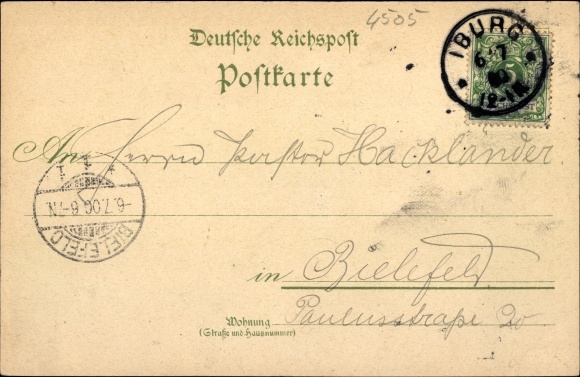 4505
Deutsche Reichspost
Postkarte
IBURG
6 7
12-1N
5
An Herrn Pastor Hackländer
-6.7.00.6-7N.
BIELEFELD
in Bielefeld
Wohnung
(Straße und Hausnummer)
Paulusstraße 20